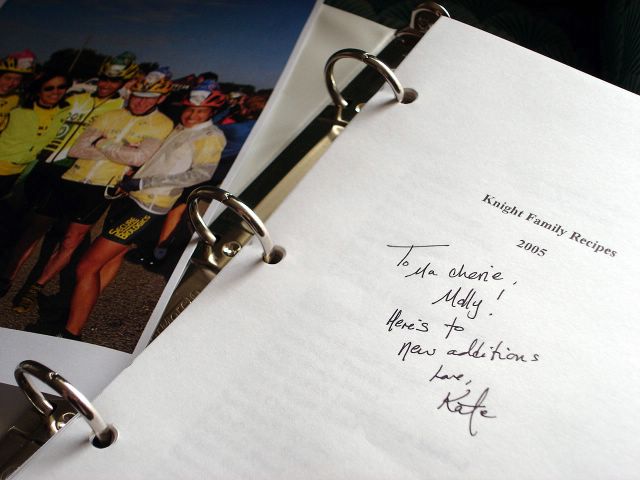 Knight Family Recipes
2005
To Ma cherie,
Molly!
Here's to
new additions
Love,
Kate